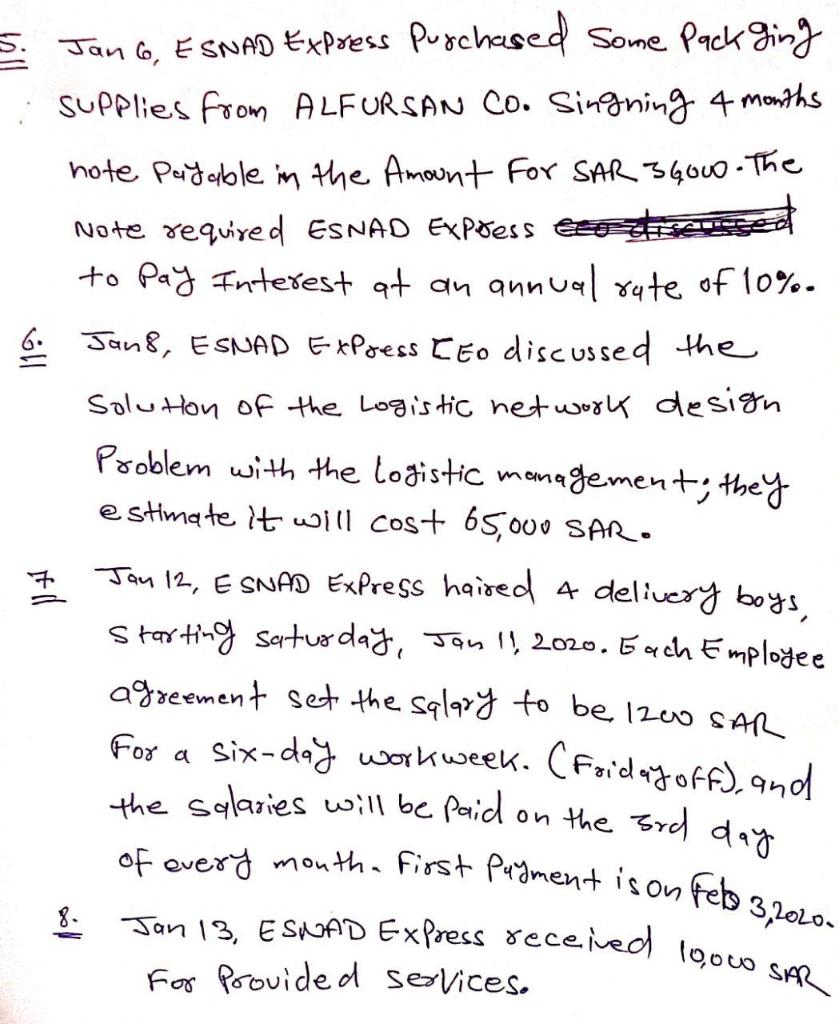 5. Jan 6, ESNAD Express Purchased Some Packging
supplies from ALFURSAN CO. Singning 4 months
note payable in the Amount For SAR 36000. The
Note required ESNAD Express
to Pay Interest at an annual rate of 10%.
6. Jan8, ESNAD Express CEO discussed the
Solution of the Logistic network design
Problem with the logistic management; they
estimate it will cost 65,000 SAR.
7 Jan 12, ESNAD Express haired 4 delivery boys,
Starting saturday, Jan 11, 2020. Each Employee
agreement set the salary to be 1200 SAR
For a six-day workweek. (Friday off), and
the salaries will be Paid on the 3rd day
of every month. First Payment is on Feb 3,2020.
8. Jan 13, ESNAD Express received 10,000 SAR
For Provided services.